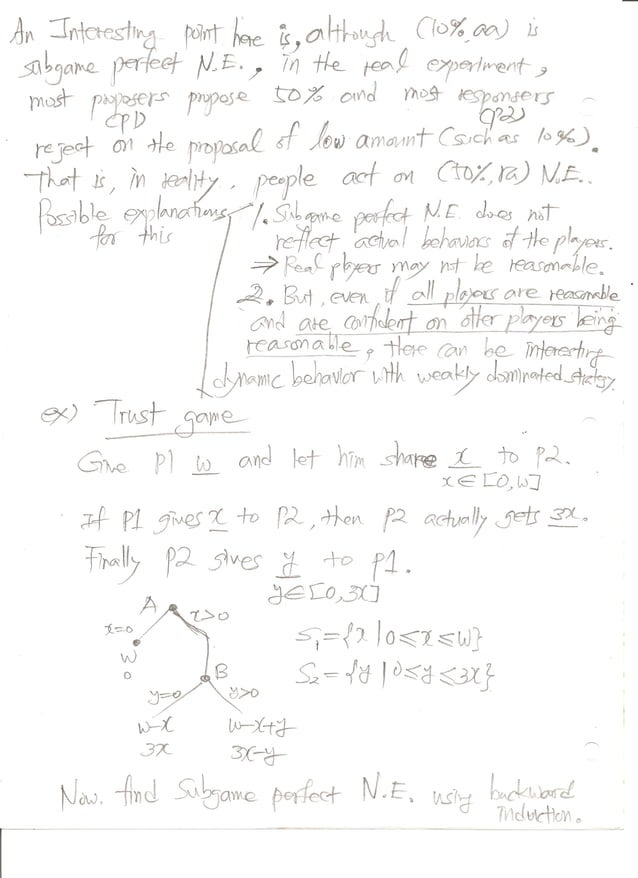 An Interesting point here is, although (10%, aa) is
subgame perfect N.E., in the real experiment,
most proposers propose 50% and most responsers
(P1) (P2)
reject on the proposal of low amount (such as 10%).
That is, in reality, people act on (50%, ra) N.E..
Possible explanations
for this
1. Subgame perfect N.E. does not
reflect actual behaviors of the players.
⇒ Real players may not be reasonable.
2. But, even if all players are reasonable
and are confident on other players being
reasonable, there can be interesting
dynamic behavior with weakly dominated strategy.
ex) Trust game
Give P1 w and let him share x to P2.
x∈[0,w]
If P1 gives x to P2, then P2 actually gets 3x.
Finally P2 gives y to P1.
y∈[0,3x]
A
x=0 x>0
w
0
B
y=0 y>0
w-x w-x+y
3x 3x-y
S₁={x|0≤x≤w}
S₂={y|0≤y≤3x}
Now. find Subgame perfect N.E. using backward
induction.